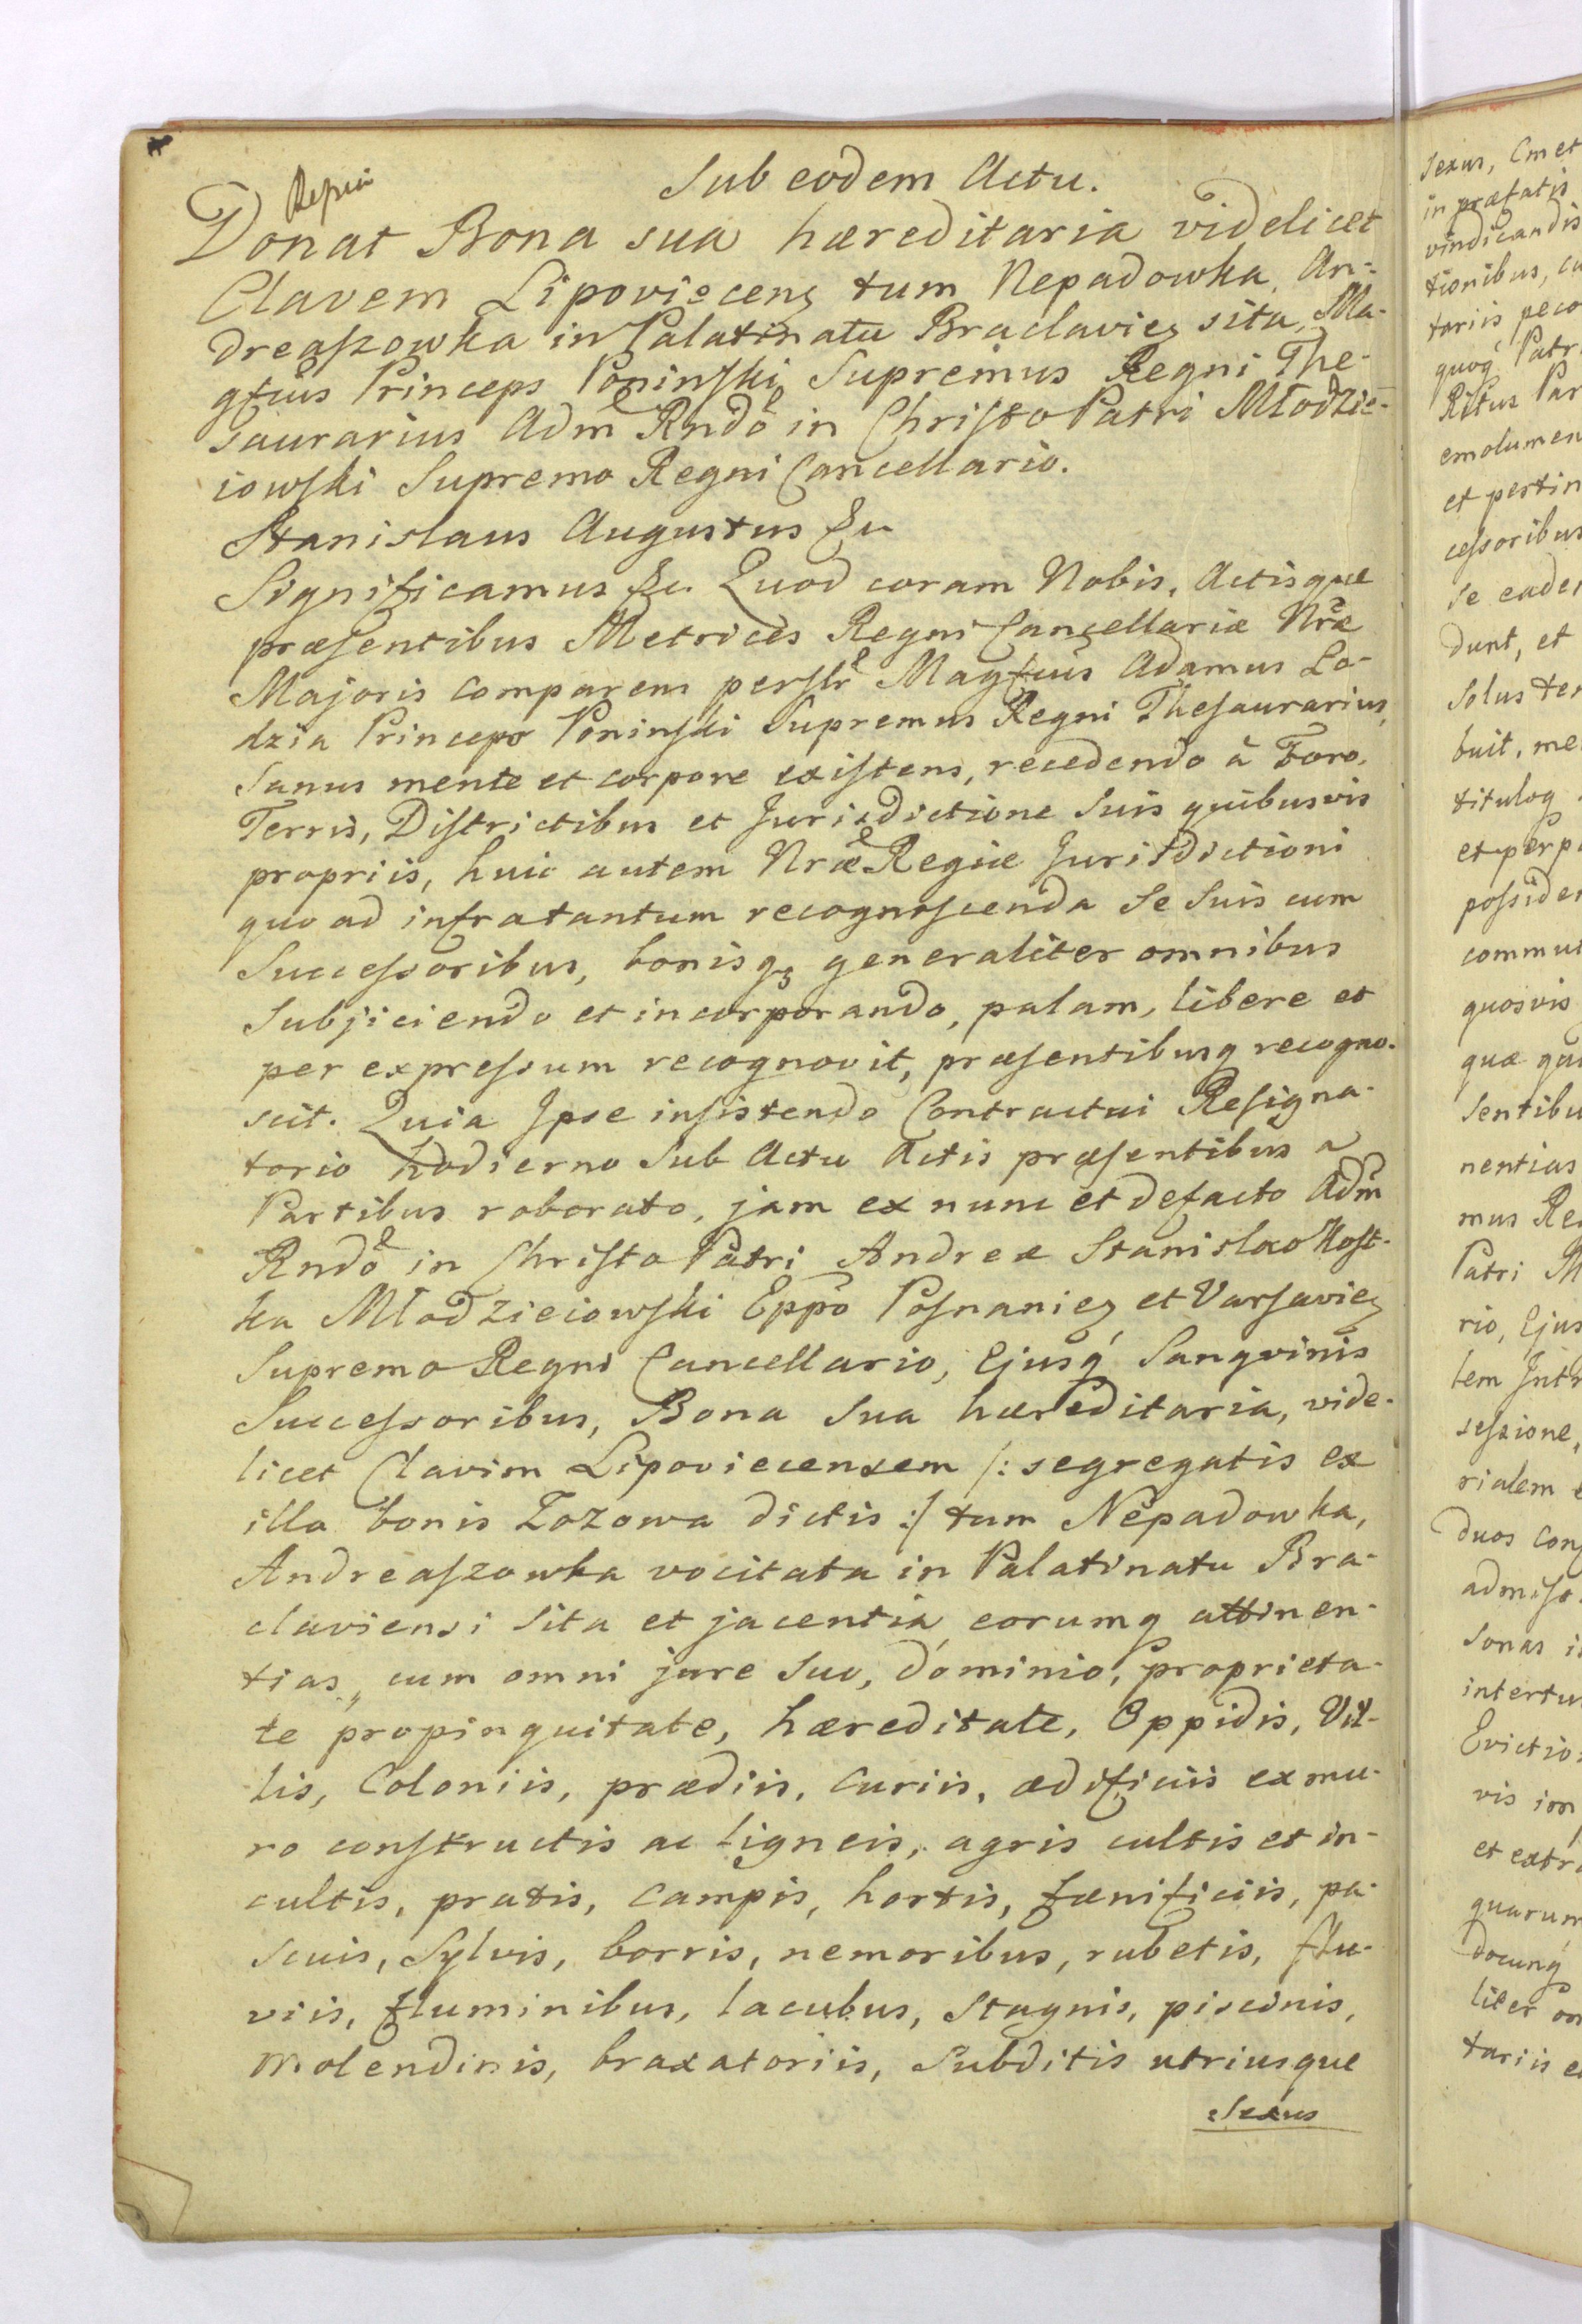 Sub eodem Actu.
Donat Bona sua hæreditaria videlicet
Clavem Lipoviecenς tum Nepadowka, An-
dreaszowka in Palatinatu Braclavieς sita, Ma-
gfcus Princeps Poninski Supremus Regni The-
saurarius Adm Rndo in Christo Patri Młodzie-
iowski Supremo Regni Cancellario.
Stanislaus Augustus &c
Significamus &c. Quod coram Nobis, Actisque
præsentibus Metrices Regni Cancellariæ Nræ
Majoris comparens perslr Magfcus Adamus Lo-
dzia Princeps Poninski Supremus Regni Thesaurarius,
sanus mente et corpore existens, recedendo à Foro,
Terris, Districtibus et Jurisdictione suis quibusvis
propriis, huic autem Nræ Regiæ Jurisdictioni
quo ad infratantum recognoscenda se suis cum
Successoribus, bonisqꝫ generaliter omnibus
subjiciendo et incorporando, palam, libere et
per expressum recognovit, præsentibusq recogno-
scit. Quia Ipse insistendo Contractui Resigna-
torio hodierno sub Actu Actis præsentibus a
Partibus roborato, jam ex nunc et defacto Adm
Rndo in Christo Patri Andreæ Stanislao Kost-
ka Młodzieiowski Eppo Posnanieς et Varsavieς
Supremo Regni Cancellario, Ejusq́ Sangvinis
Successoribus, Bona sua hæreditaria, vide-
licet Clavim Lipoviecensem /: segregatis ex
illa bonis Zozowa dictis :/ tum Nepadowka,
Andreaszowka vocitata in Palatinatu Bra-
claviensi sita et jacentia eorumq́ attinen-
tias, cum omni jure suo, dominio, proprieta-
te propinquitate, hæreditate, Oppidis, Vil-
lis, Coloniis, prædiis, curiis, ædificiis ex mu-
ro constructis ac ligneis, agris cultis et in-
cultis, pratis, campis, hortis, fænificiis, pa-
scuis, Sylvis, borris, nemoribus, rubetis, flu-
viis, fluminibus, lacubus, Stagnis, piscinis,
molendinis, braxatoriis, Subditis utriusque
Sexus